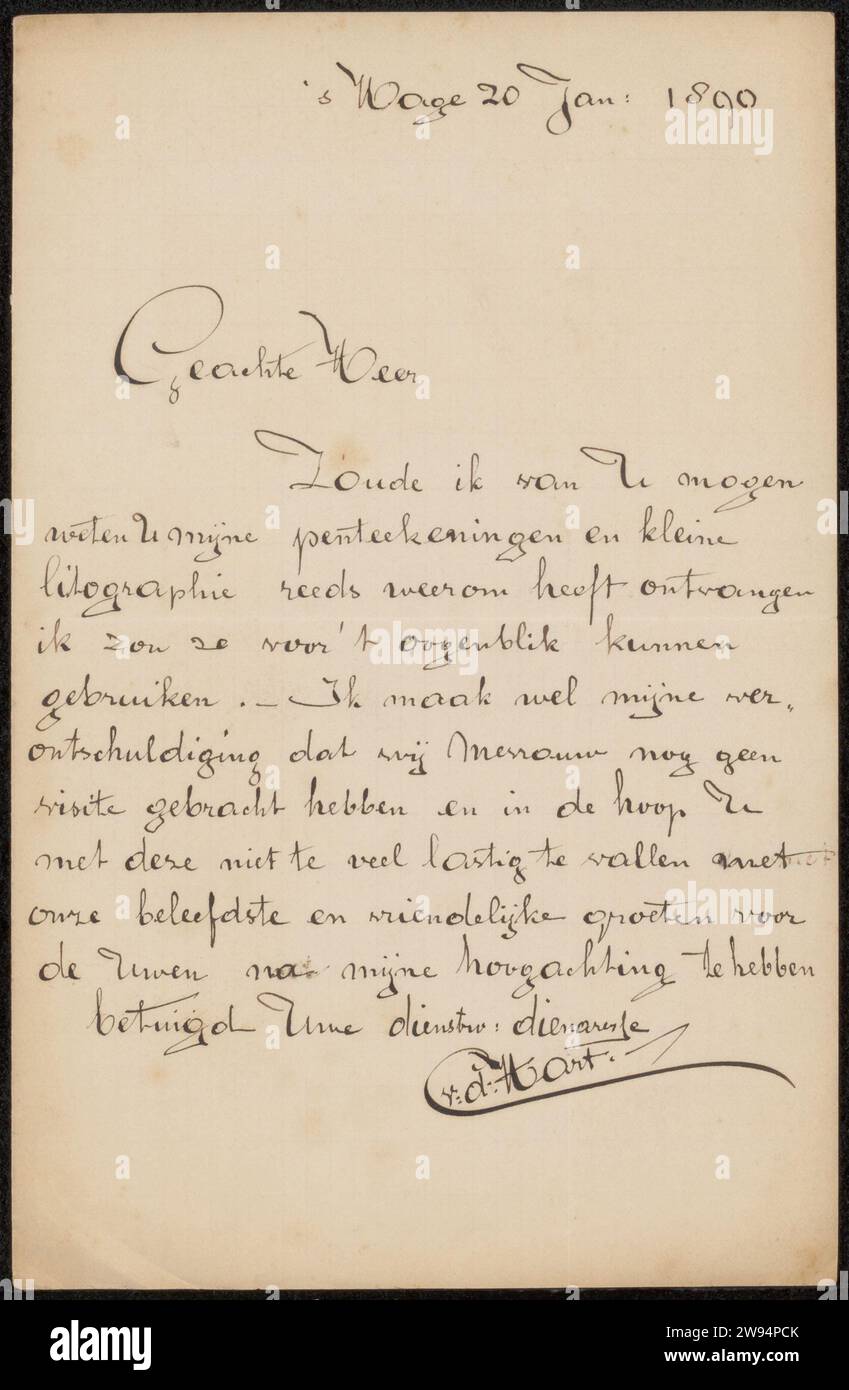 's Hage 20 Jan: 1890
Geachte Heer
Zoude ik van U mogen
weten U mijne penteekeningen en kleine
litographie reeds weerom heeft ontvangen
ik zou ze voor 't oogenblik kunnen
gebruiken . — Ik maak wel mijne ver„
ontschuldiging dat wij Mevrouw nog geen
visite gebracht hebben en in de hoop U
met deze niet te veel lastig te vallen met
onze beleefdste en vriendelijke groeten voor
de Uwen na mijne hoogachting te hebben
betuigd Uwe dienstw: dienaresse
v: d: Hart.
alamy
Image ID: 2W94PCK
www.alamy.com